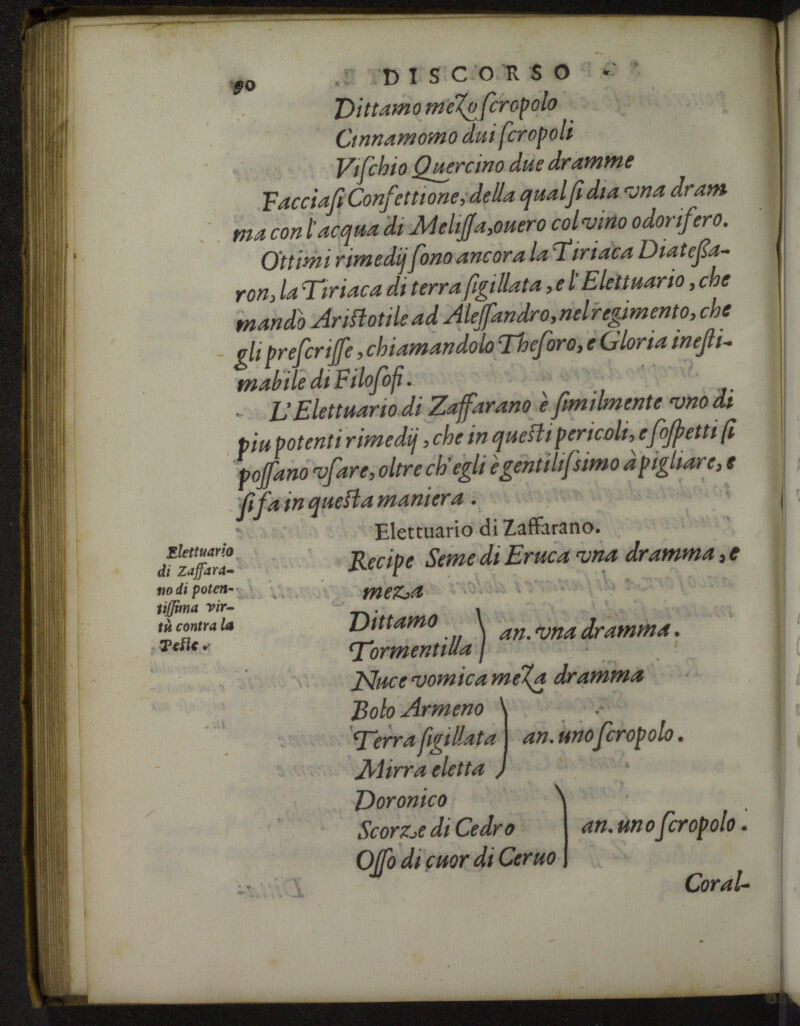 90 DISCORSO
Dittamo mezo ſcropolo
Cinnamomo dui ſcropoli
Viſchio Quercino due dramme
Facciaſi Confettione, della qual ſi dia vna dram
ma con l'acqua di Meliſſa, ouero col vino odorifero.
Ottimi rimedij ſono ancora la Tiriaca Diateßa-
ron, la Tiriaca di terra ſigillata, e l'Elettuario, che
mandò Ariſtotile ad Aleſſandro, nel regimento, che
gli preſcriſſe, chiamandolo Theſoro, e Gloria ineſti-
mabile di Filoſofi.
L'Elettuario di Zaffarano è ſimilmente vno di
piu potenti rimedij, che in queſti pericoli, e ſoſpetti ſi
poſſano vſare, oltre ch'egli è gentiliſsimo à pigliare, e
ſi fa in queſta maniera.
Elettuario di Zaffarano.
Elettuario
di Zaffara-
no di poten-
tiſſima vir-
tù contra la
Peſte.
Recipe Seme di Eruca vna dramma, e
meza
Dittamo
Tormentilla } an. vna dramma.
Nuce vomica meza dramma
Bolo Armeno
Terra ſigillata } an. uno ſcropolo.
Mirra eletta
Doronico
Scorze di Cedro } an. uno ſcropolo.
Oſſo di cuor di Ceruo
Coral-